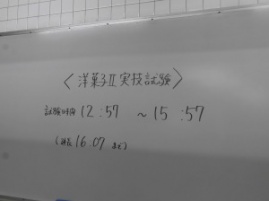 〈洋菓子Ⅱ実技試験〉
試験時間 12:57 ~ 15:57
(延長 16.07 まで)